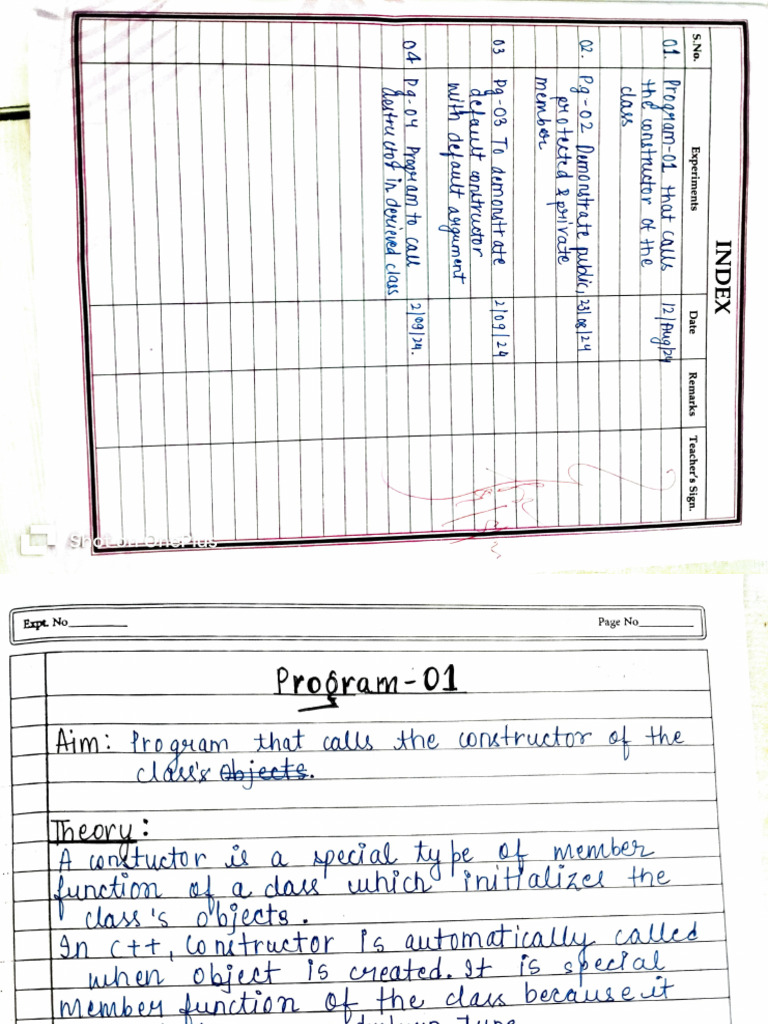 INDEX
S.No. Experiments Date Remarks Teacher's Sign.
01. Program-01 that calls 12/Aug/24
the constructor of the
class
02. Pg-02 Demonstrate public, 23/08/24
protected & private
member
03 Pg-03 To demonstrate 2/09/24
default constructor
with default argument
04 Pg-04 Program to call 2/09/24.
destructor in derieved class
Shot on OnePlus
Expt. No Page No
Program-01
Aim: Program that calls the constructor of the
class's objects.
Theory:
A constuctor is a special type of member
function of a class which initializes the
class's objects.
In C++, Constructor is automatically called
when object is created. It is special
member function of the class because it